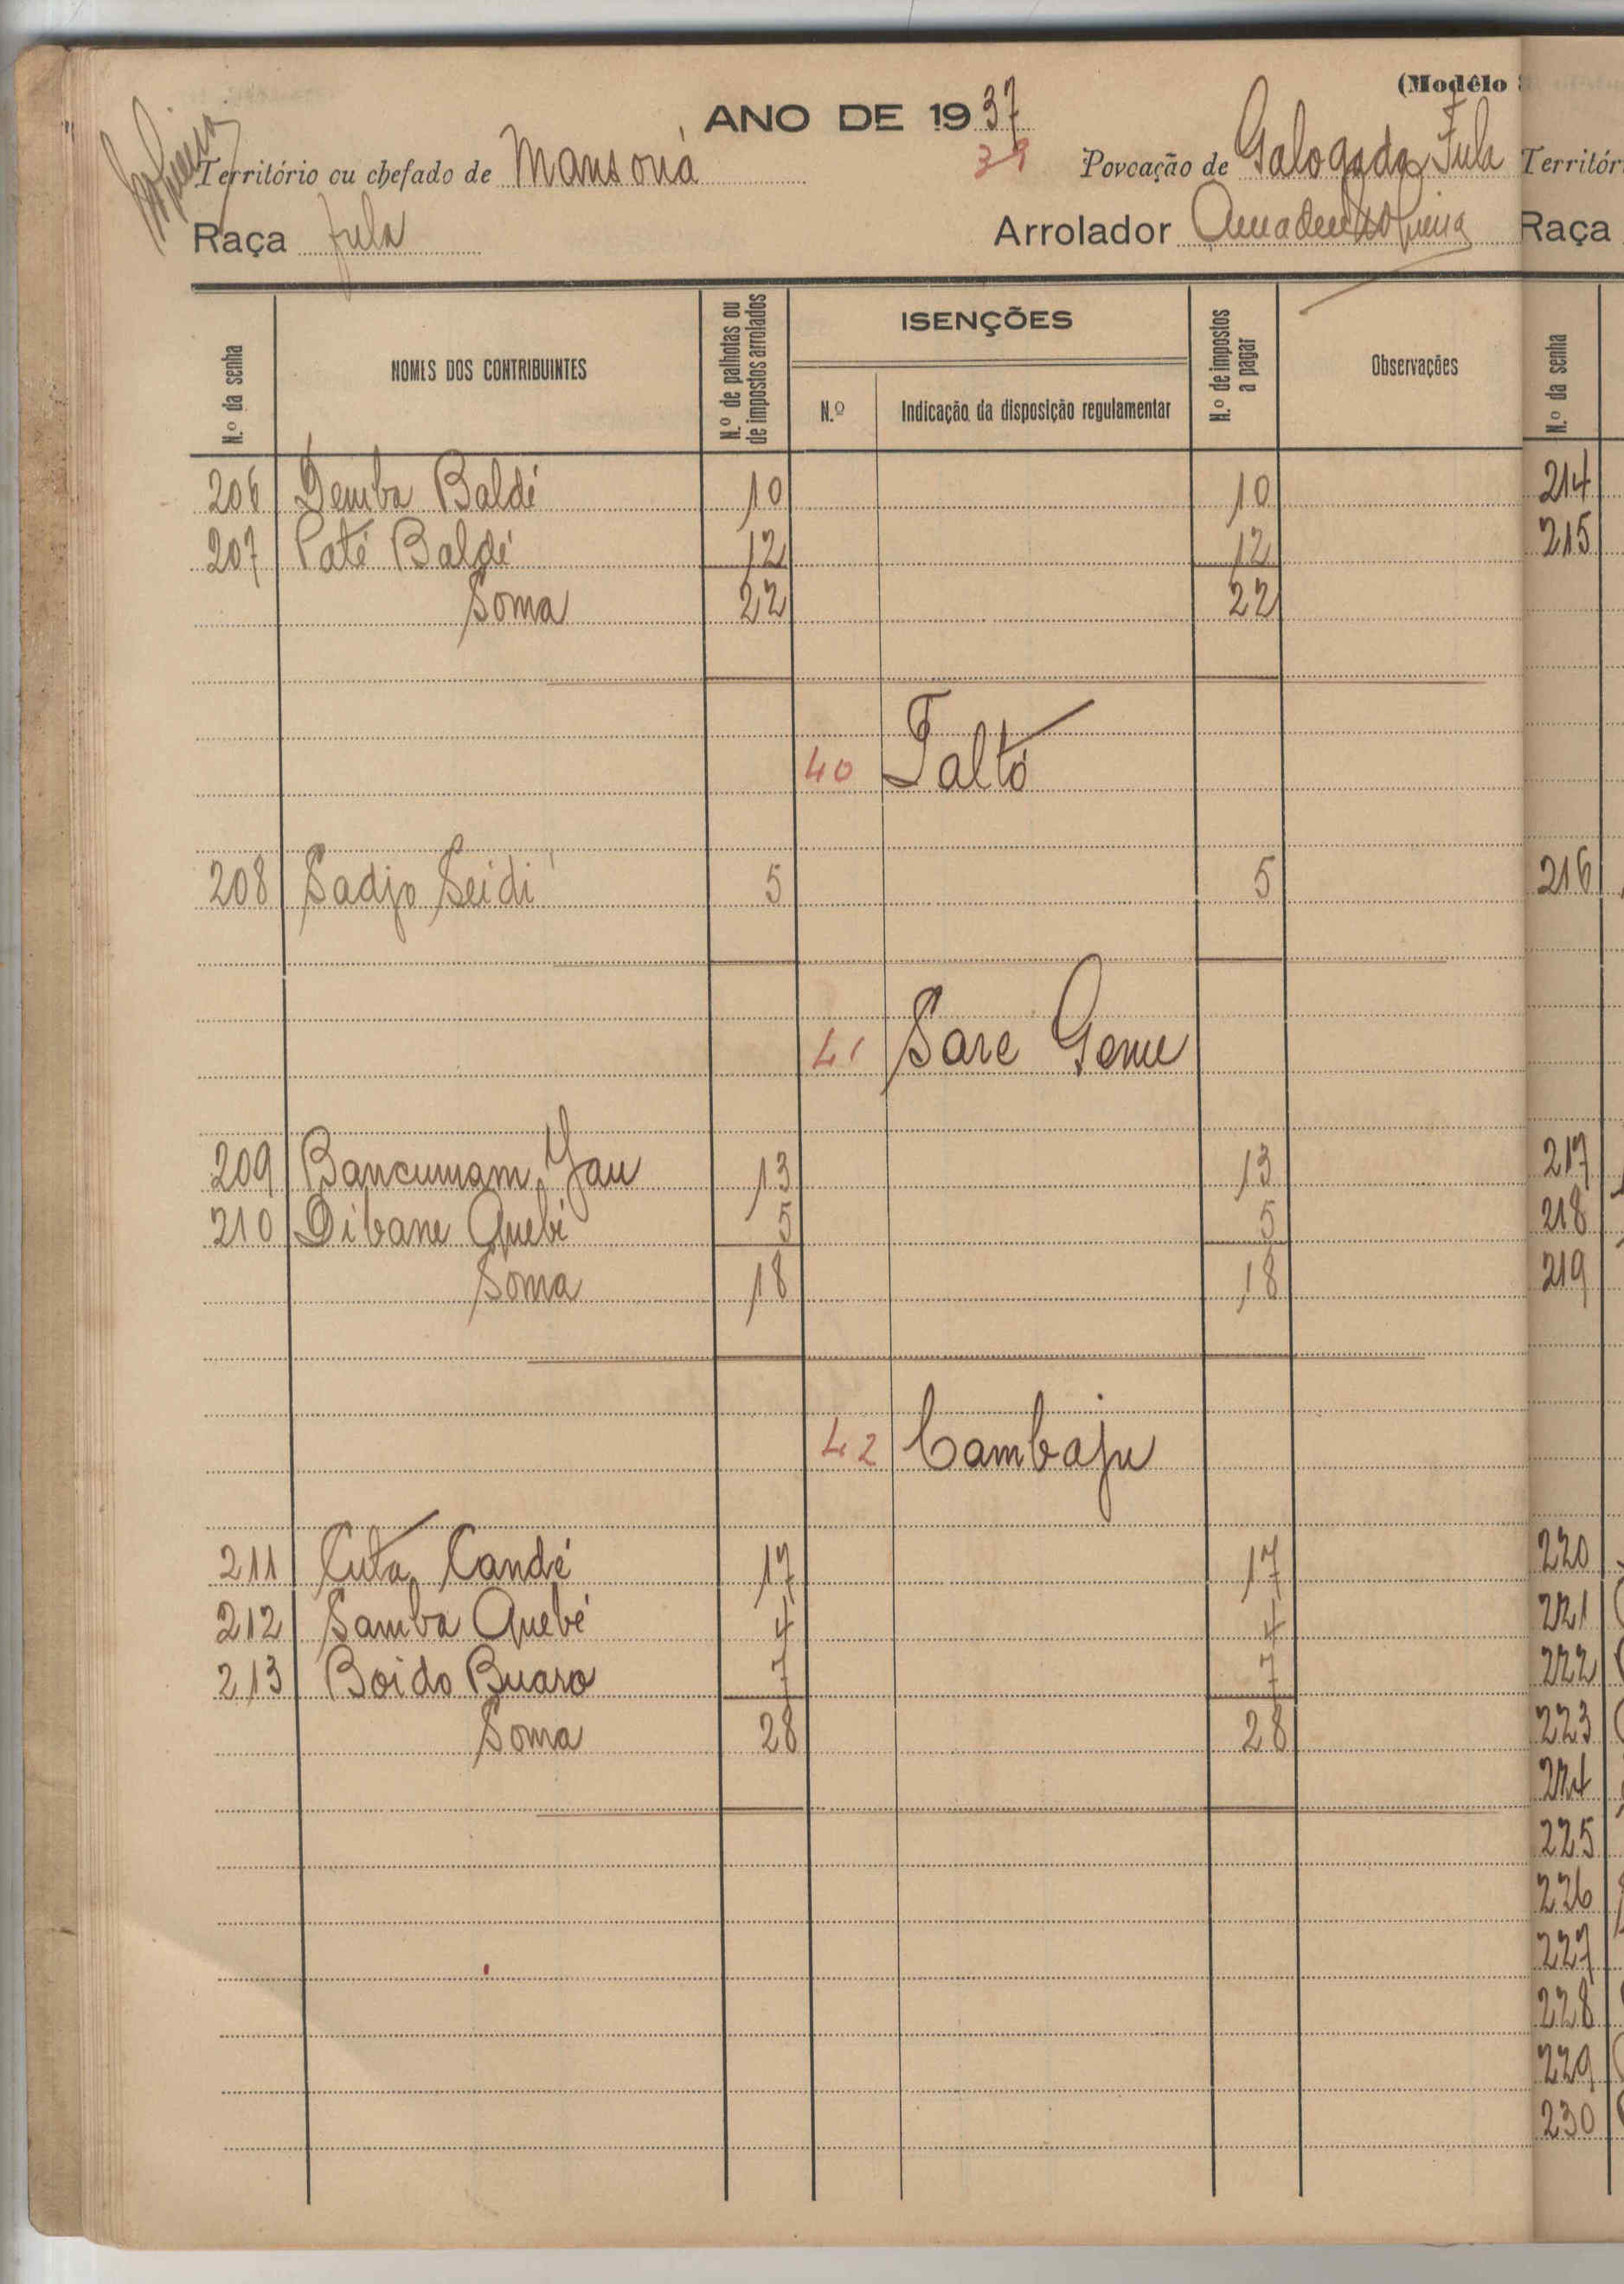 (Modêlo
ANO DE 1937
Território ou chefado de Mansoná 39 Povoação de Galogada Fula
Raça Fula Arrolador Amadeu Nogueira
N.º da senha NOMES DOS CONTRIBUINTES N.º de palhotas ou de impostos arrolados ISENÇÕES N.º de impostos a pagar Observações
N.º Indicação da disposição regulamentar
206 Demba Baldé 10 10
207 Paté Baldé 12 12
Soma 22 22
40 Taltó
208 Sadjo Seidi 5 5
41 Sare Geme
209 Bancumam Jau 13 13
210 Dibane Quebé 5 5
Soma 18 18
42 Cambaju
211 Cuta Candé 17 17
212 Samba Quebé 4 4
213 Boido Buaro 7 7
Soma 28 28
Territór
Raça
N.º da senha
214
215
216
217
218
219
220
221
222
223
224
225
226
227
228
229
230